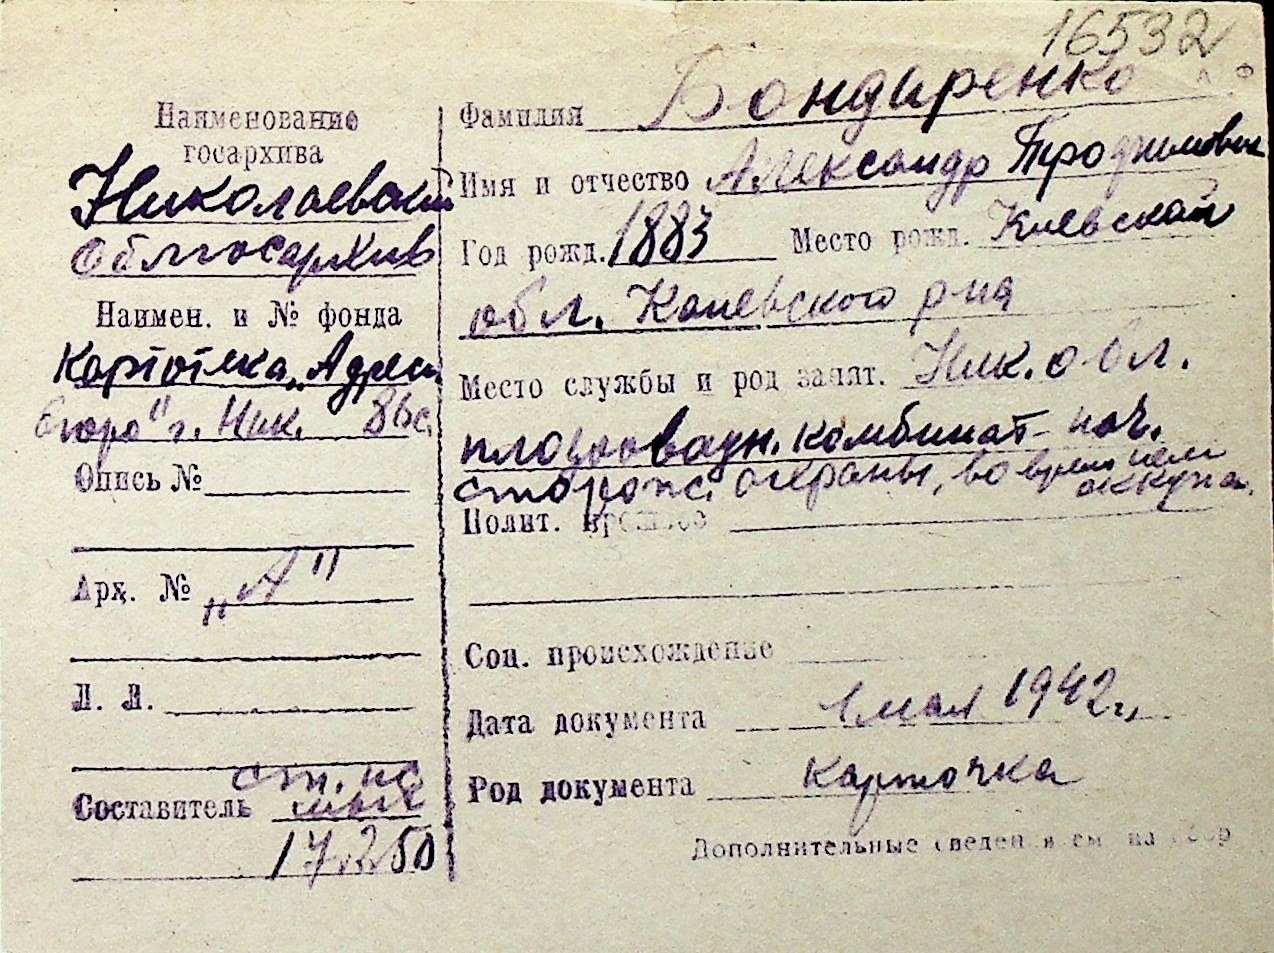 16532
Наименование
госархива
Николаевский
облгосархив
Наимен. и № фонда
Картотека „Адресн.
бюро" г. Ник. 86с.
Опись №
Арх. № „А"
Л. Л.
Составитель ст. на
17.2.50
Фамилия Бондаренко
Имя и отчество Александр Трофимович
Год рожд. 1883 Место рожд. Киевской
обл. Каневского р-на
Место службы и род занят. Ник. обл.
плодоовощн. комбинат - ноч.
сторож. охраны, во время нем
оккупа.
Полит. прошлое
Соц. происхождение
Дата документа 1 мая 1942 г.
Род документа карточка
Дополнительные сведения см на обор